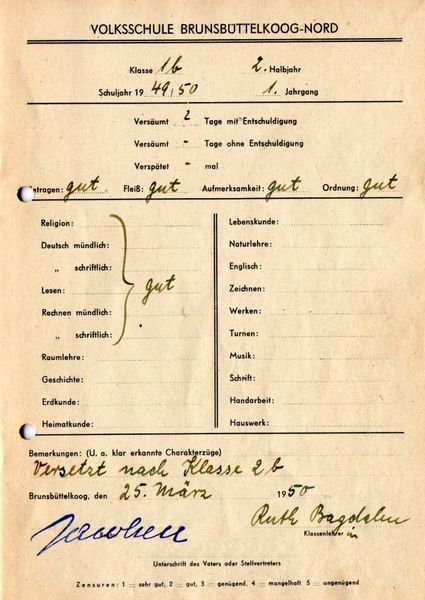 VOLKSSCHULE BRUNSBÜTTELKOOG-NORD
Klasse 1b 2. Halbjahr
Schuljahr 19 49/50 1. Jahrgang
Versäumt 2 Tage mit Entschuldigung
Versäumt - Tage ohne Entschuldigung
Verspätet - mal
Betragen: gut Fleiß: gut Aufmerksamkeit: gut Ordnung: gut
Religion:
Deutsch mündlich:
„ schriftlich:
Lesen: gut
Rechnen mündlich:
„ schriftlich:
Raumlehre:
Geschichte:
Erdkunde:
Heimatkunde:
Lebenskunde:
Naturlehre:
Englisch:
Zeichnen:
Werken:
Turnen:
Musik:
Schrift:
Handarbeit:
Hauswerk:
Bemerkungen: (U. a. klar erkannte Charakterzüge)
Versetzt nach Klasse 2b
Brunsbüttelkoog, den 25. März 1950
Ruth
Klassenlehrer in
Unterschrift des Vaters oder Stellvertreters
Zensuren: 1 = sehr gut, 2 = gut, 3 = genügend, 4 = mangelhaft 5 = ungenügend